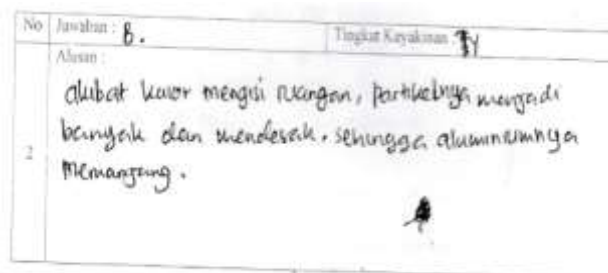 No Jawaban : B. Tingkat Keyakinan : Y
Alasan :
akibat kalor mengisi ruangan, partikelnya menjadi
banyak dan mendesak. sehingga aluminiumnya
2
memanjang.